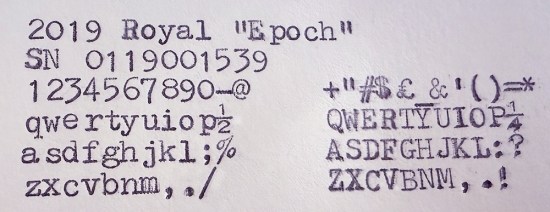 2019 Royal "Epoch"
SN 0119001539
1234567890-@ +"#$£_&'()=*
qwertyuiop½ QWERTYUIOP¼
asdfghjkl;% ASDFGHJKL:?
zxcvbnm,./ ZXCVBNM,.!